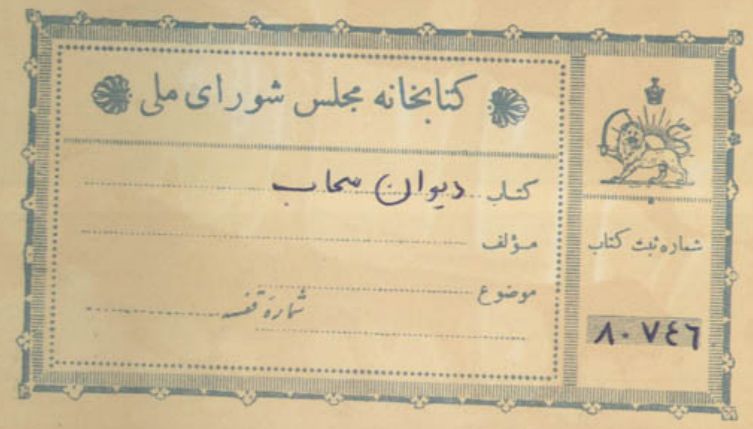 کتابخانه مجلس شورای ملی
کتاب دیوان سحاب
مؤلف
موضوع
شمارهٔ قفسه
شماره ثبت کتاب
۸۰۷٤٦